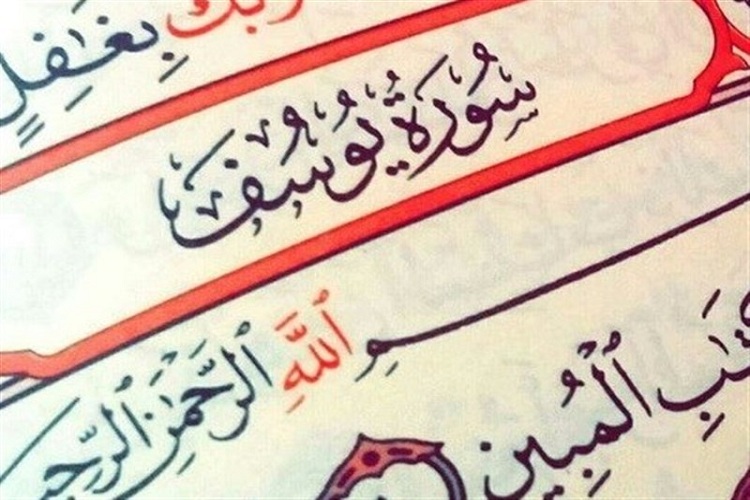 ربك بغفل
سُورَةُ يُوسُفَ
سمِ ٱللَّهِ ٱلرَّحْمَٰنِ ٱلرَّحِي
ٱلْمُبِينِ